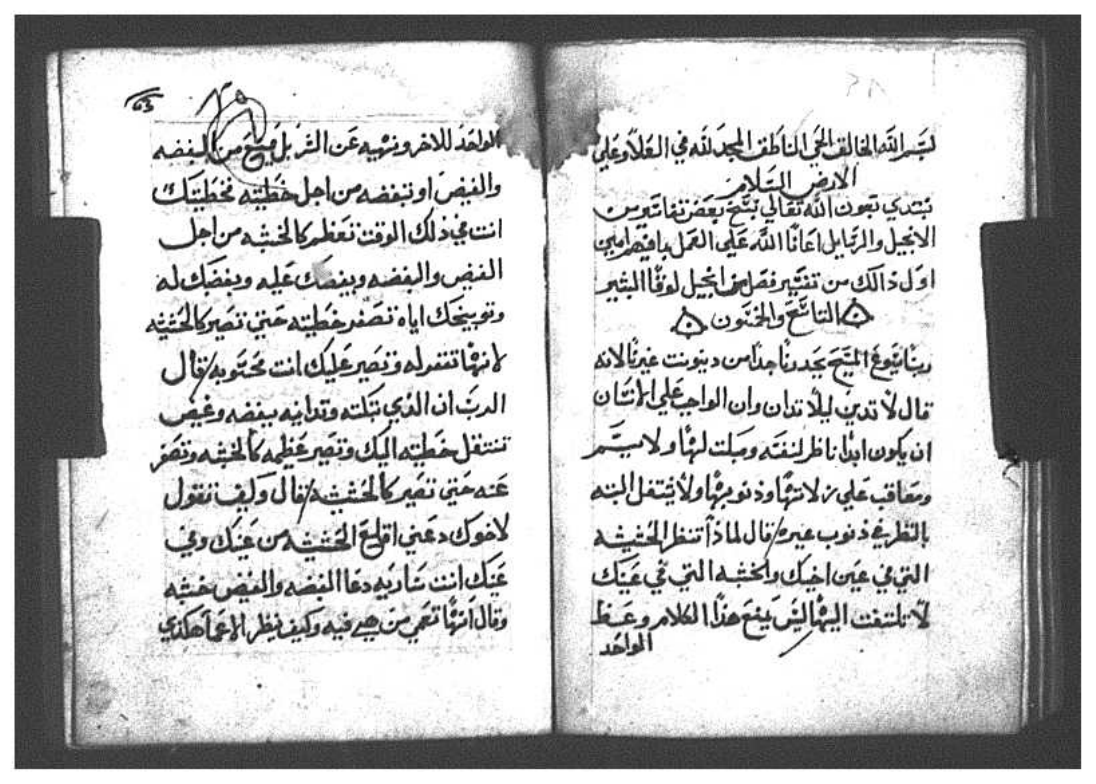 بسم الله الخالق الحي الناطق المجد لله في العلا وعلي
الارض السلام
نبتدي بعون الله تعالي بنسخ بعض تفاسير من
الانجيل والرسايل اعاننا الله علي العمل بما فيهم امين
اول ذالك من تفسير فصل من انجيل لوقا البشير
التاسع والخمسون
ربنا يسوع المسيح يحذرنا جدا من دينونت غيرنا لانه
قال لا تدين ليلا تدان وان الواجب علي الانسان
ان يكون ابدا ناظر لنفسه ومبكت لها ولا يسم
ومعاقب علي زلاتها وذنوبها ولا يشتغل البته
بالنظر في ذنوب غيره / قال لماذا تنظر الحشيشه
التي في عين اخيك والخشبه التي في عينك
لا تلتفت اليها ليس يمنع هذا الكلام وعظ
الواحد
63
الواحد للاخر ونهيه عن الشر بل يمنع من البغضه
والغيض او تبغضه من اجل خطيته فخطيتك
انت في ذلك الوقت تعظم كالخشبه من اجل
الغيض والبغضه وبيغضك عليه وبغضك له
وتوبيخك اياه تصغر خطيته حتي تصير كالحشيشه
لانها تغفر له وتصير عليك انت محسوبه / قال
الرب ان الذي تبكته وتدانيه ببغضه وغيض
تنتقل خطيته اليك وتصير عظيمه كالخشبه وتصغر
عنه حتي تصير كالحشيشه / قال وكيف تقول
لاخوك دعني اقلع الحشيشه من عينك وفي
عينك انت ساريه دعا البغضه والغيض خشبه
وقال انها تعمي من هي فيه وكيف ينظر الاعما هكذي